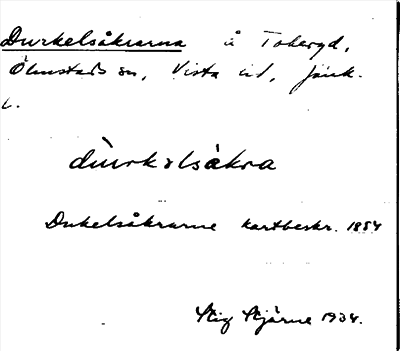 Durkelsåkrarna å Toberyd,
Ölmstads sn, Vista hd, Jönk.
L.
dùrkəlsåkra
Dukelsåkrarne kartbeskr. 1854
Stig Stjärne 1934.